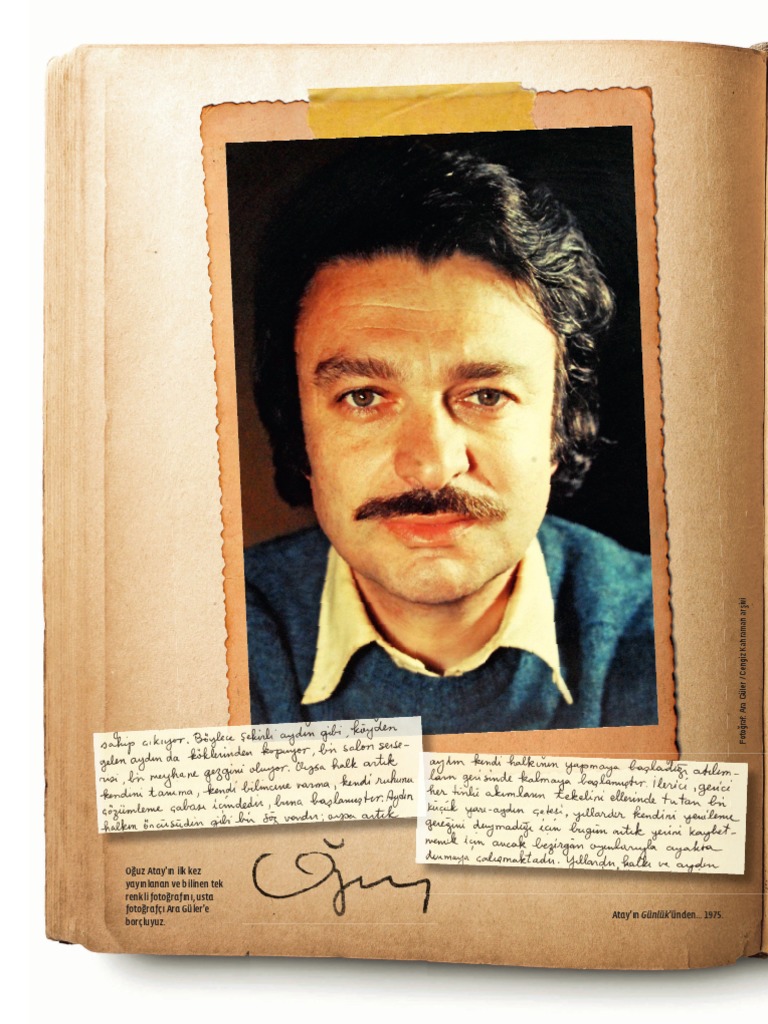 sahip çıkıyor. Böylece şehirli aydın gibi, köyden
gelen aydın da köklerinden kopuyor, bir salon serse-
risi, bir meyhane gezgini oluyor. Oysa halk artık
kendini tanıma, kendi bilincine varma, kendi ruhunu
çözümleme çabası içindedir, buna başlamıştır. Aydın
halkın öncüsüdür gibi bir söz vardır; oysa artık
aydın kendi halkının yapmaya başladığı atılım-
ların gerisinde kalmaya başlamıştır. İlerici, gerici
her türlü akımların tekelini ellerinde tutan bir
küçük yarı-aydın çetesi, yıllardır kendini yenileme
gereğini duymadığı için bugün artık yerini kaybet-
memek için ancak bezirgân oyunlarıyla ayakta
durmaya çalışmaktadır. Yıllardır, halkı ve aydın
Oğuz
Oğuz Atay'ın ilk kez
yayınlanan ve bilinen tek
renkli fotoğrafını, usta
fotoğrafçı Ara Güler'e
borçluyuz.
Atay'ın Günlük'ünden... 1975.
Fotoğraf: Ara Güler / Cengiz Kahraman arşivi